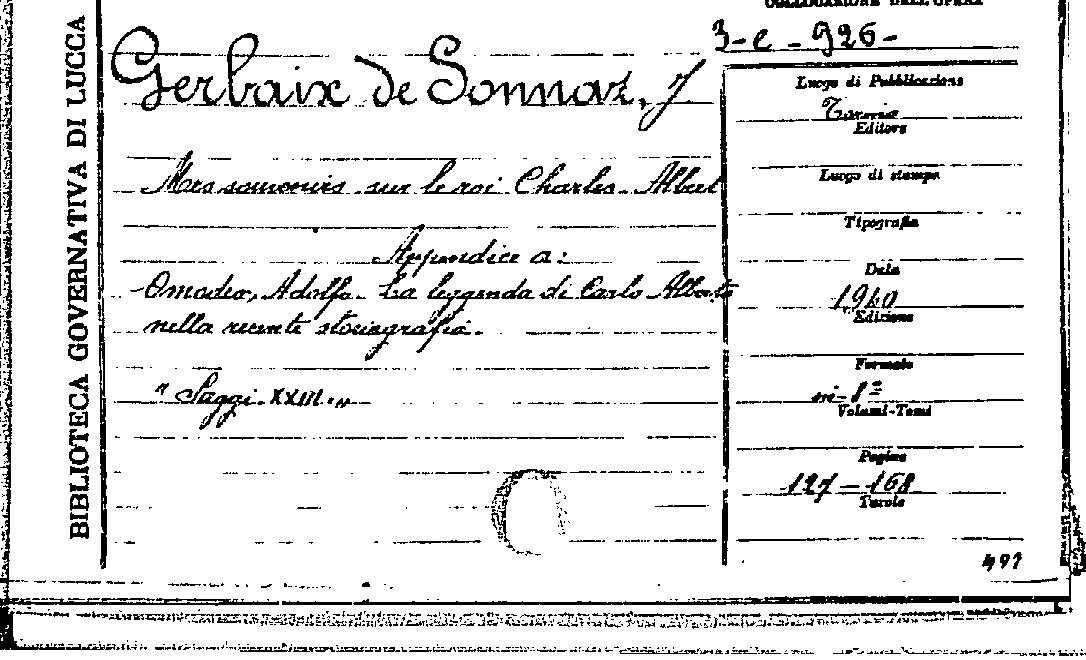 BIBLIOTECA GOVERNATIVA DI LUCCA
COLLOCAZIONE DELL'OPERA
3-e-926-
Gerbaix de Sonnaz, J
Mes souvenirs sur le roi Charles-Albert
Appendice a:
Omodeo, Adolfo- La leggenda di Carlo Alberto
nella recente storiografia.
"Saggi. XXIII."
Luogo di Pubblicazione
Torino
Editore
Luogo di stampa
Tipografia
Data
1940
Edizione
Formato
in-8º
Volumi-Tomi
Pagine
127-168
Tavole
491